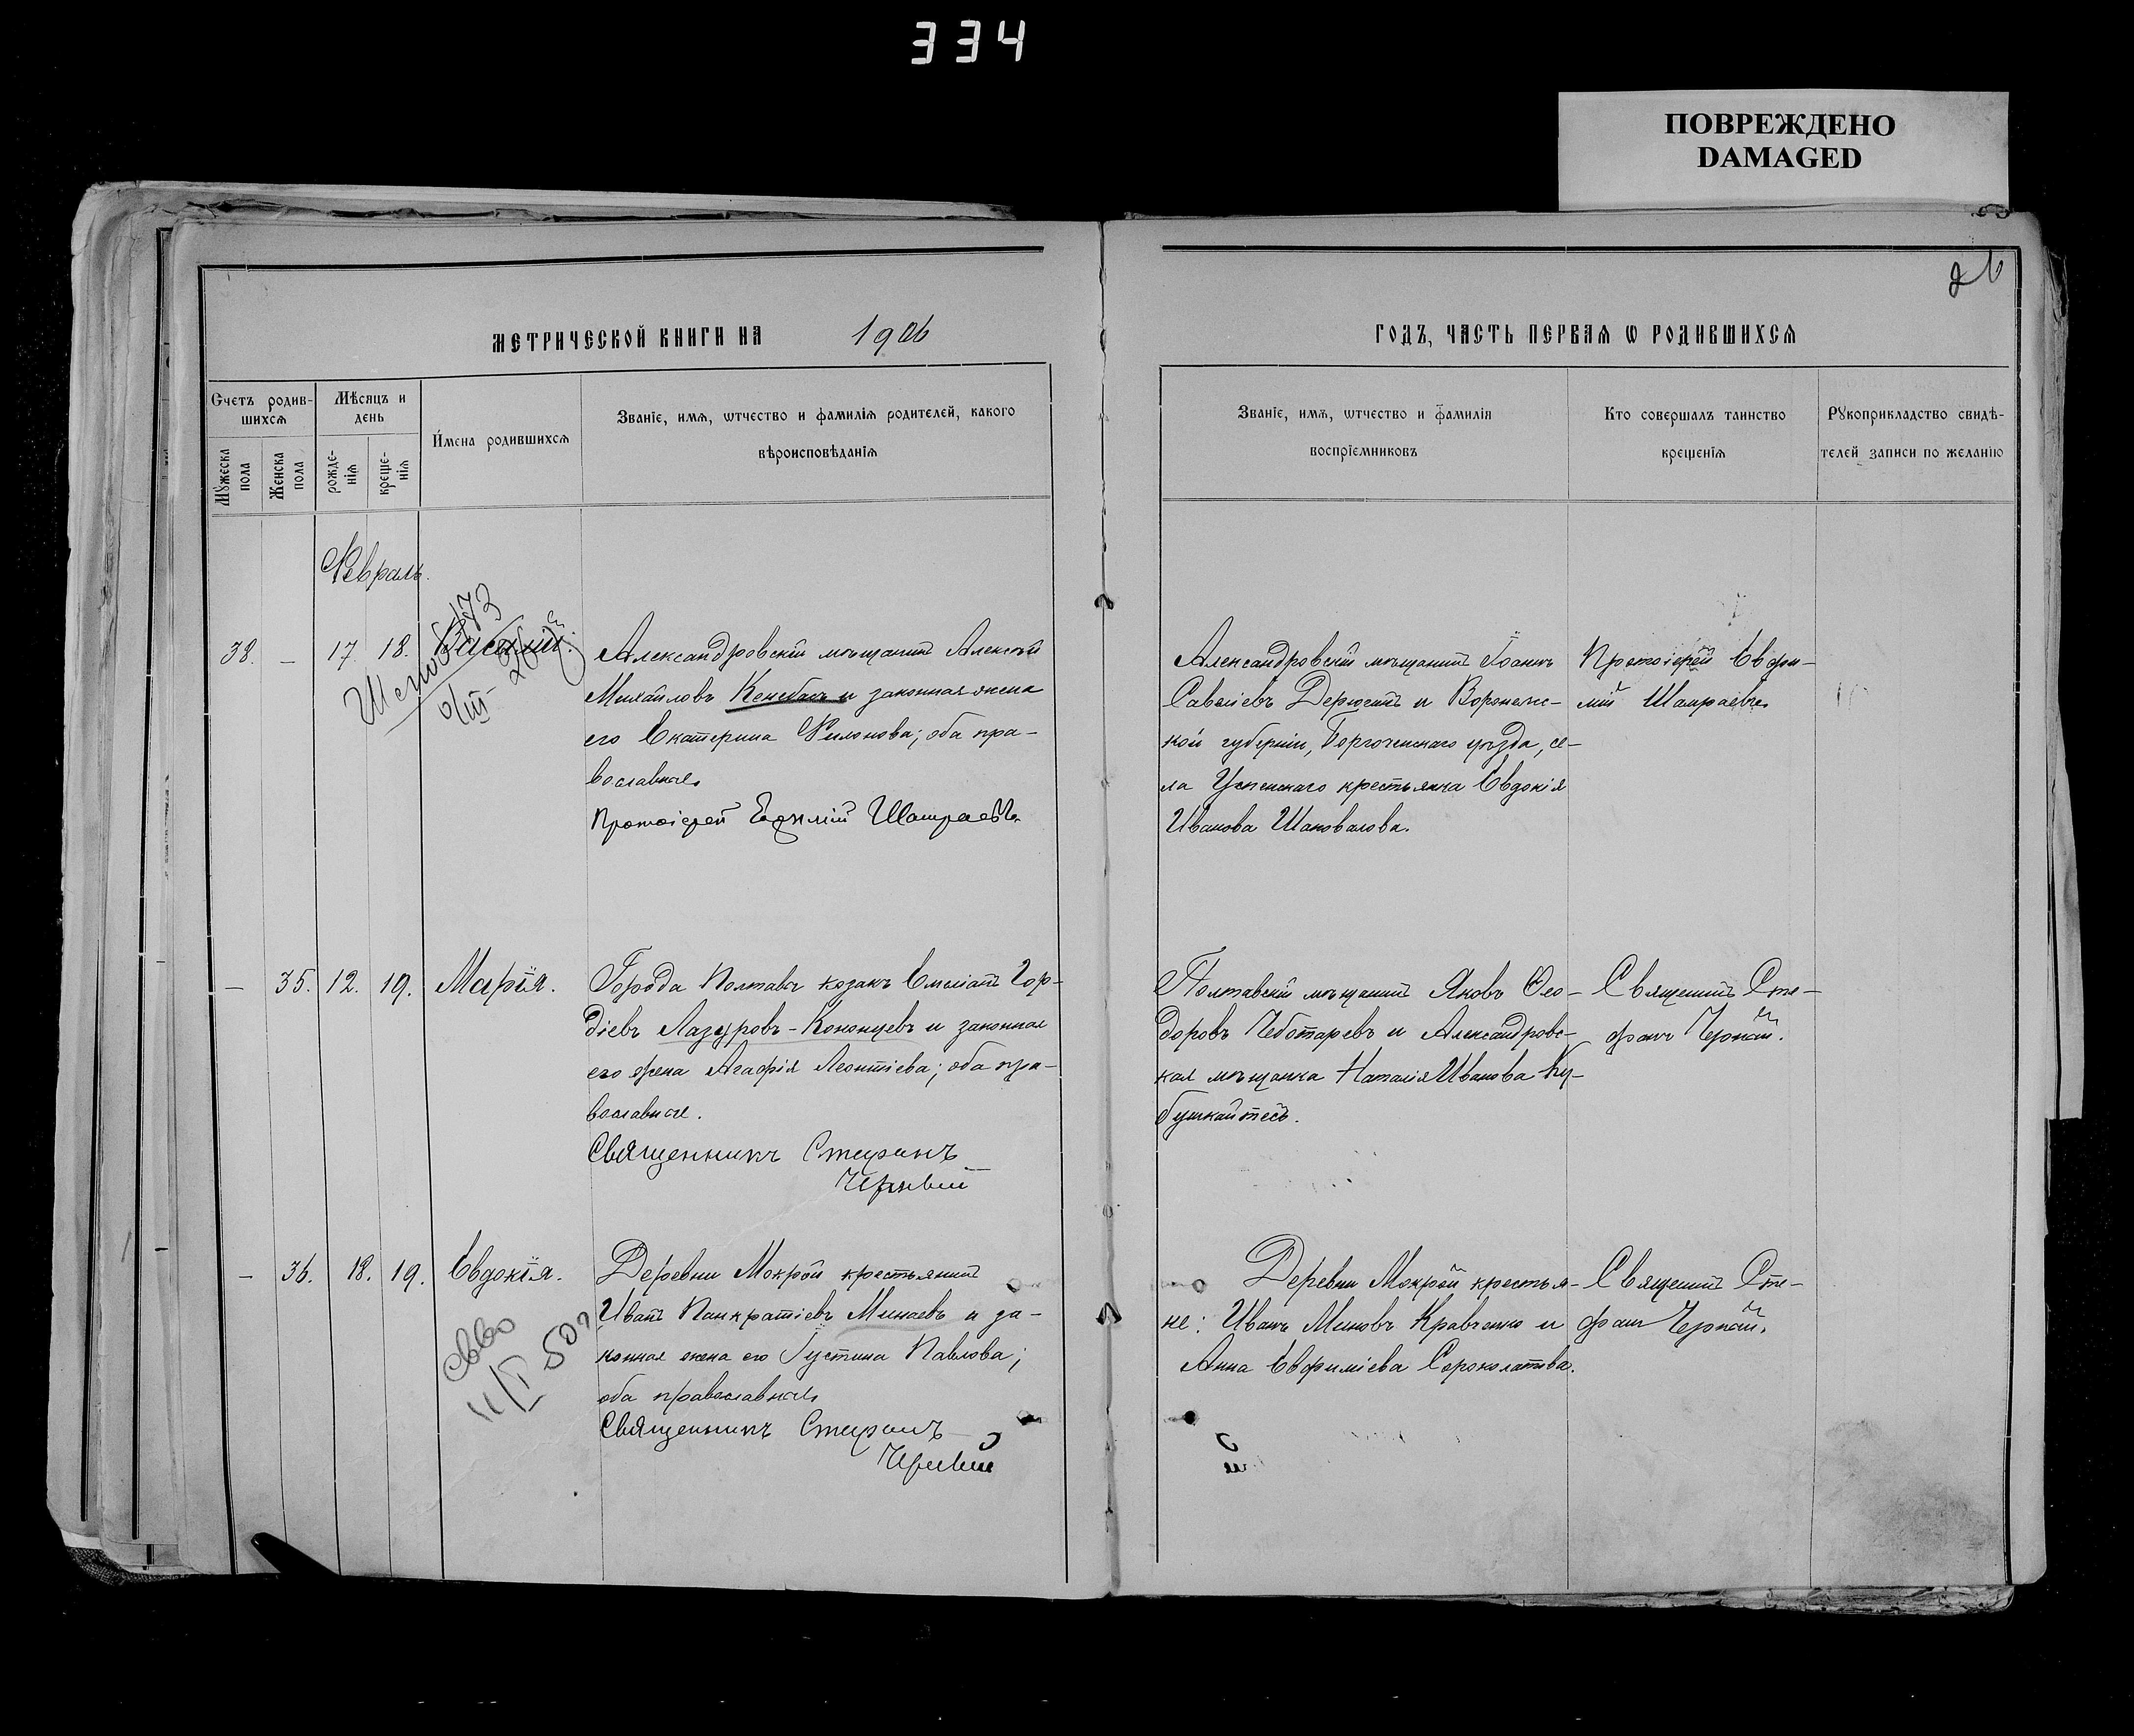 334
ПОВРЕЖДЕНО
DAMAGED
26
МЕТРИЧЕСКОЙ КНИГИ НА 1906
ГОДЪ, ЧАСТЬ ПЕРВАѦ Ѡ РОДИВШИХСѦ
Счетъ родив-
шихсѧ
Мѣсяцъ и
день
Имена родившихсѧ
Званїе, имѧ, ѡтчество и фамилїѧ родителей, какого
вѣроисповѣданїѧ
Мꙋжеска
пола
Женска
пола
рожде-
нїѧ
креще-
нїѧ
Званїе, имѧ, ѡтчество и фамилїѧ
воспрїемниковъ
Кто совершалъ таинство
крещенїѧ
Рꙋкоприкладство свидѣ-
телей записи по желанїю
Февраль.
38. – 17. 18. Василій.
Александровскій мѣщанинъ Алексѣй
Михайловъ и законная жена
его Екатерина Филонова; оба пра-
вославные
Протоіерей Евфимій
Александровскій мѣщанинъ Іоаннъ
Савеліевъ и Воронежс-
кой губерніи, уѣзда, се-
ла Успенскаго крестьянка Евдокія
Иванова Шаповалова.
Протоіерей Евфи-
мій
– 35. 12. 19. Марія.
Города Полтавы козакъ Емеліанъ Гор-
діевъ Лазуровъ-Кононцевъ и законная
его жена Агафія Леонтіева; оба пра-
вославные.
Священникъ Стефанъ
Полтавскій мѣщанинъ Яковъ Ѳео-
доровъ Чеботаревъ и Александровс-
кая мѣщанка Наталія Иванова
Священникъ Сте-
фанъ
– 36. 18. 19. Евдокія.
Деревни Мокрой крестьянинъ
Иванъ Панкратіевъ Минаевъ и за-
конная жена его Іустина Павлова;
оба православные
Священникъ Стефанъ
11/I 50
Деревни Мокрой крестья-
не: Иванъ Миновъ Кравченко и
Анна Евфиміева
Священникъ Сте-
фанъ